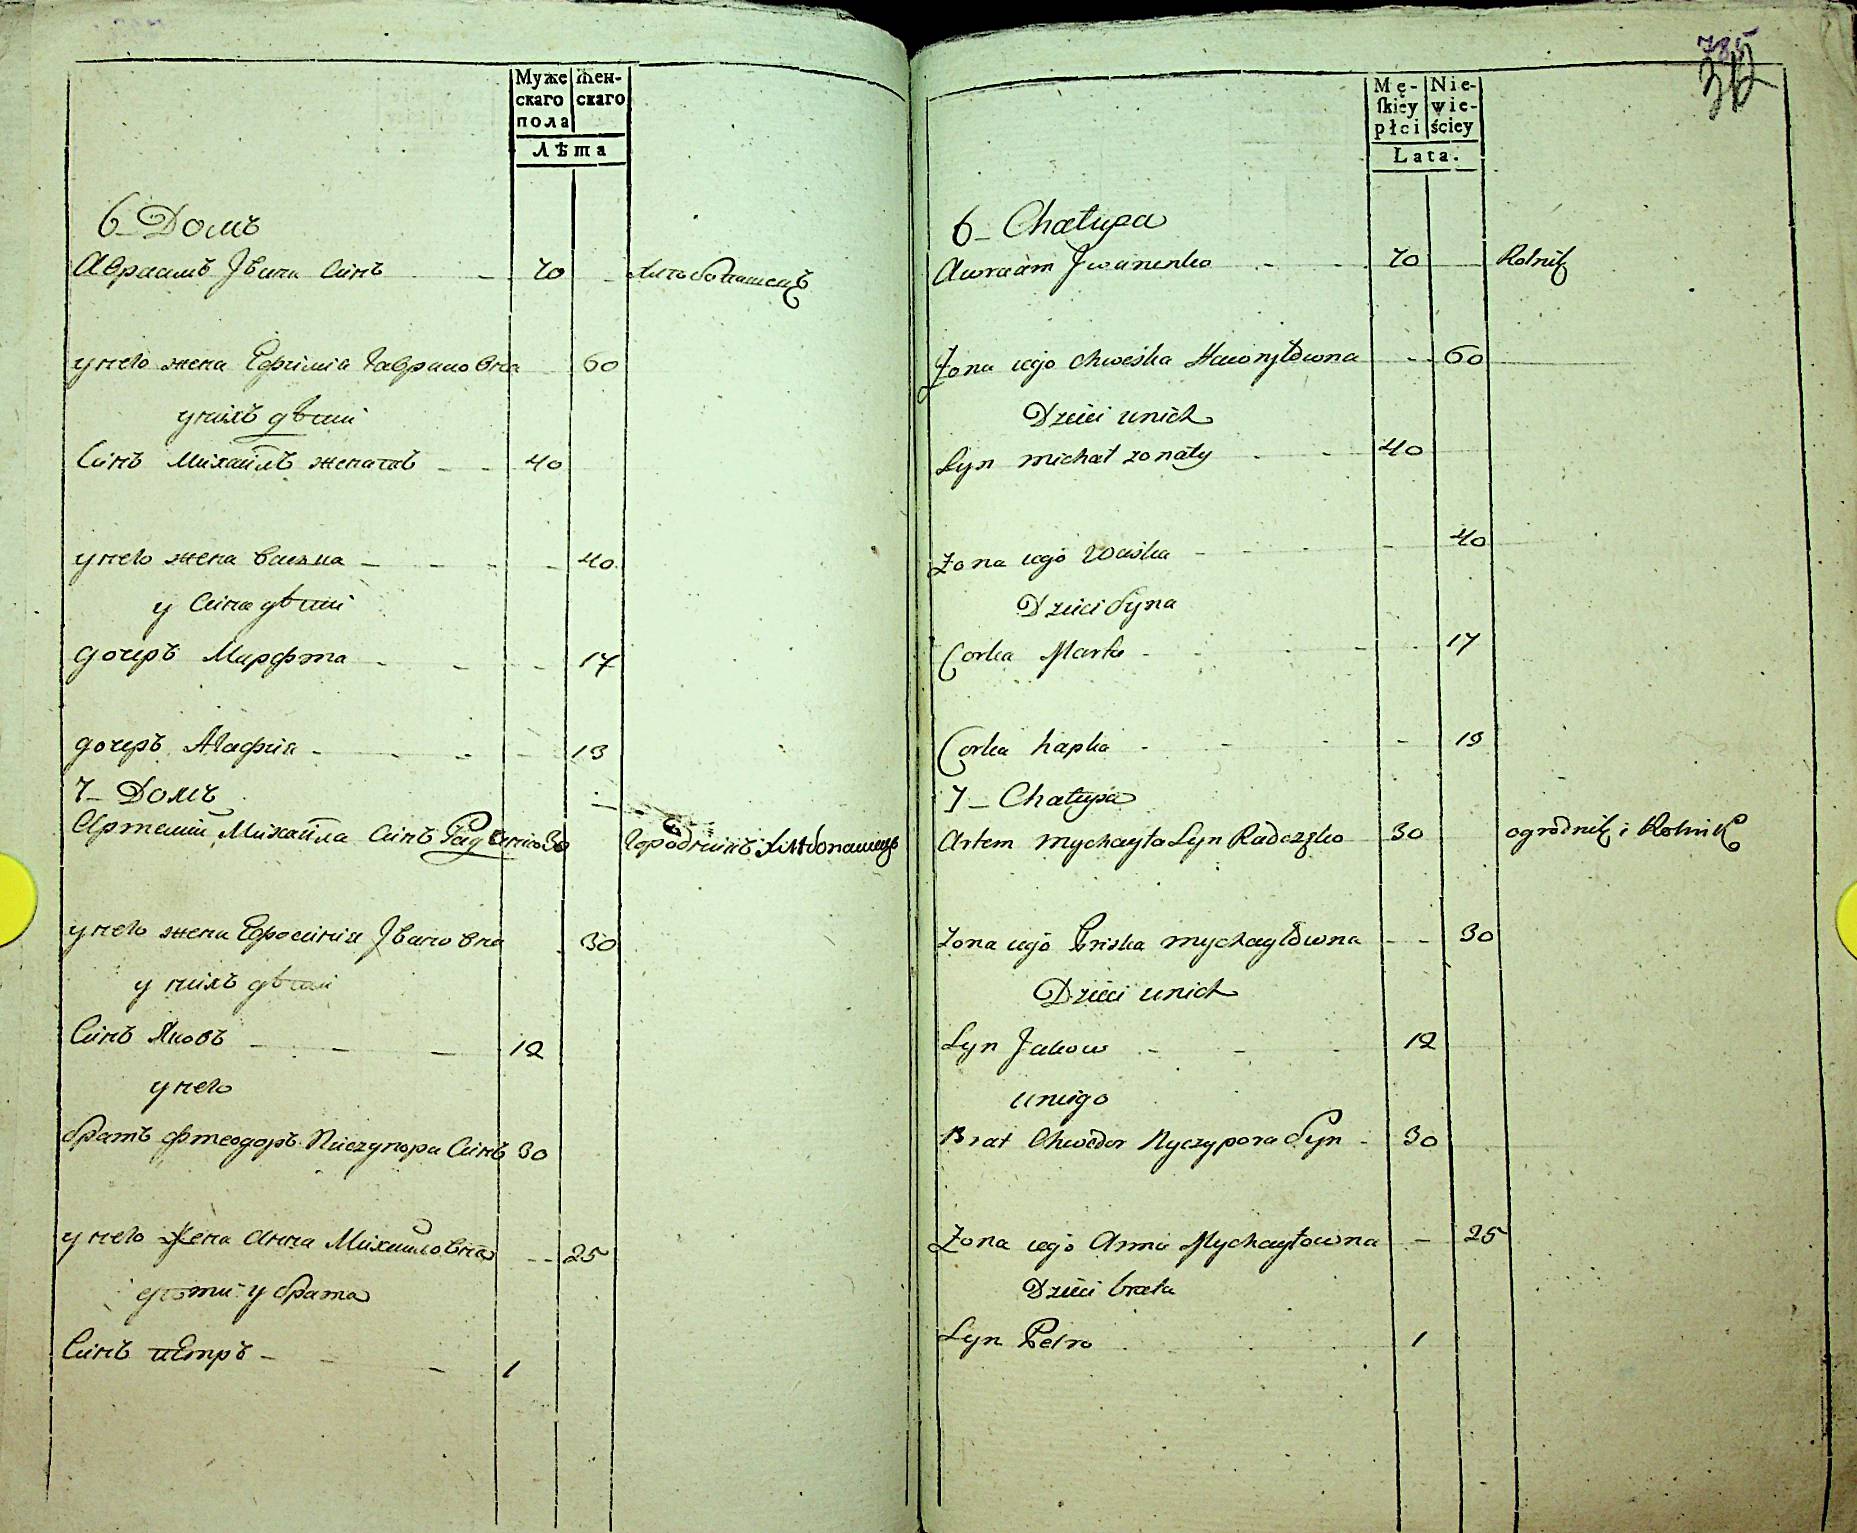 Муже Жен-
скаго скаго
пола
Лѣта
6 Домъ
Авраамъ Івана Синъ 70 Хлѣбопашецъ
у него жена Ефимія Гавриловна 60
у нихъ дѣти
Синъ Михаилъ женатъ 40
у него жена Васька 40
у Сина дѣти
дочеръ Марфта 17
дочеръ Агафия 13
7 Домъ
Артемий Михайла Синъ 30 Городникъ Хлѣбопашецъ
у него жена Ефросиния Івановна 30
у нихъ дѣти
Синъ Яковъ 12
у него
братъ Фтеодоръ Ничипора Синъ 30
у него Жена Анна Михайловна 25
дѣти у брата
Синъ Петръ 1
785
Mę- Nie-
skiey wie-
płci ściey
Lata.
6 Chałupa
Awraam Iwanenko 70 Rolnik
Żona iego Chweśka Hawryłowna 60
Dzieci u nich
Syn Michał zonaty 40
Żona iego Waska 40
Dzieci Syna
Corka Marta 17
Corka hapka 13
7 Chałupa
Artem Mychayła Syn Radczęko 30 ogrodnik i Rolnik
Zona iego Priska Mychayłowna 30
Dzieci u nich
Syn Jakow 12
u niego
Brat Chwedor Nyczypora Syn 30
Żona iego Anna Mychayłowna 25
Dzieci brata
Syn Petro 1